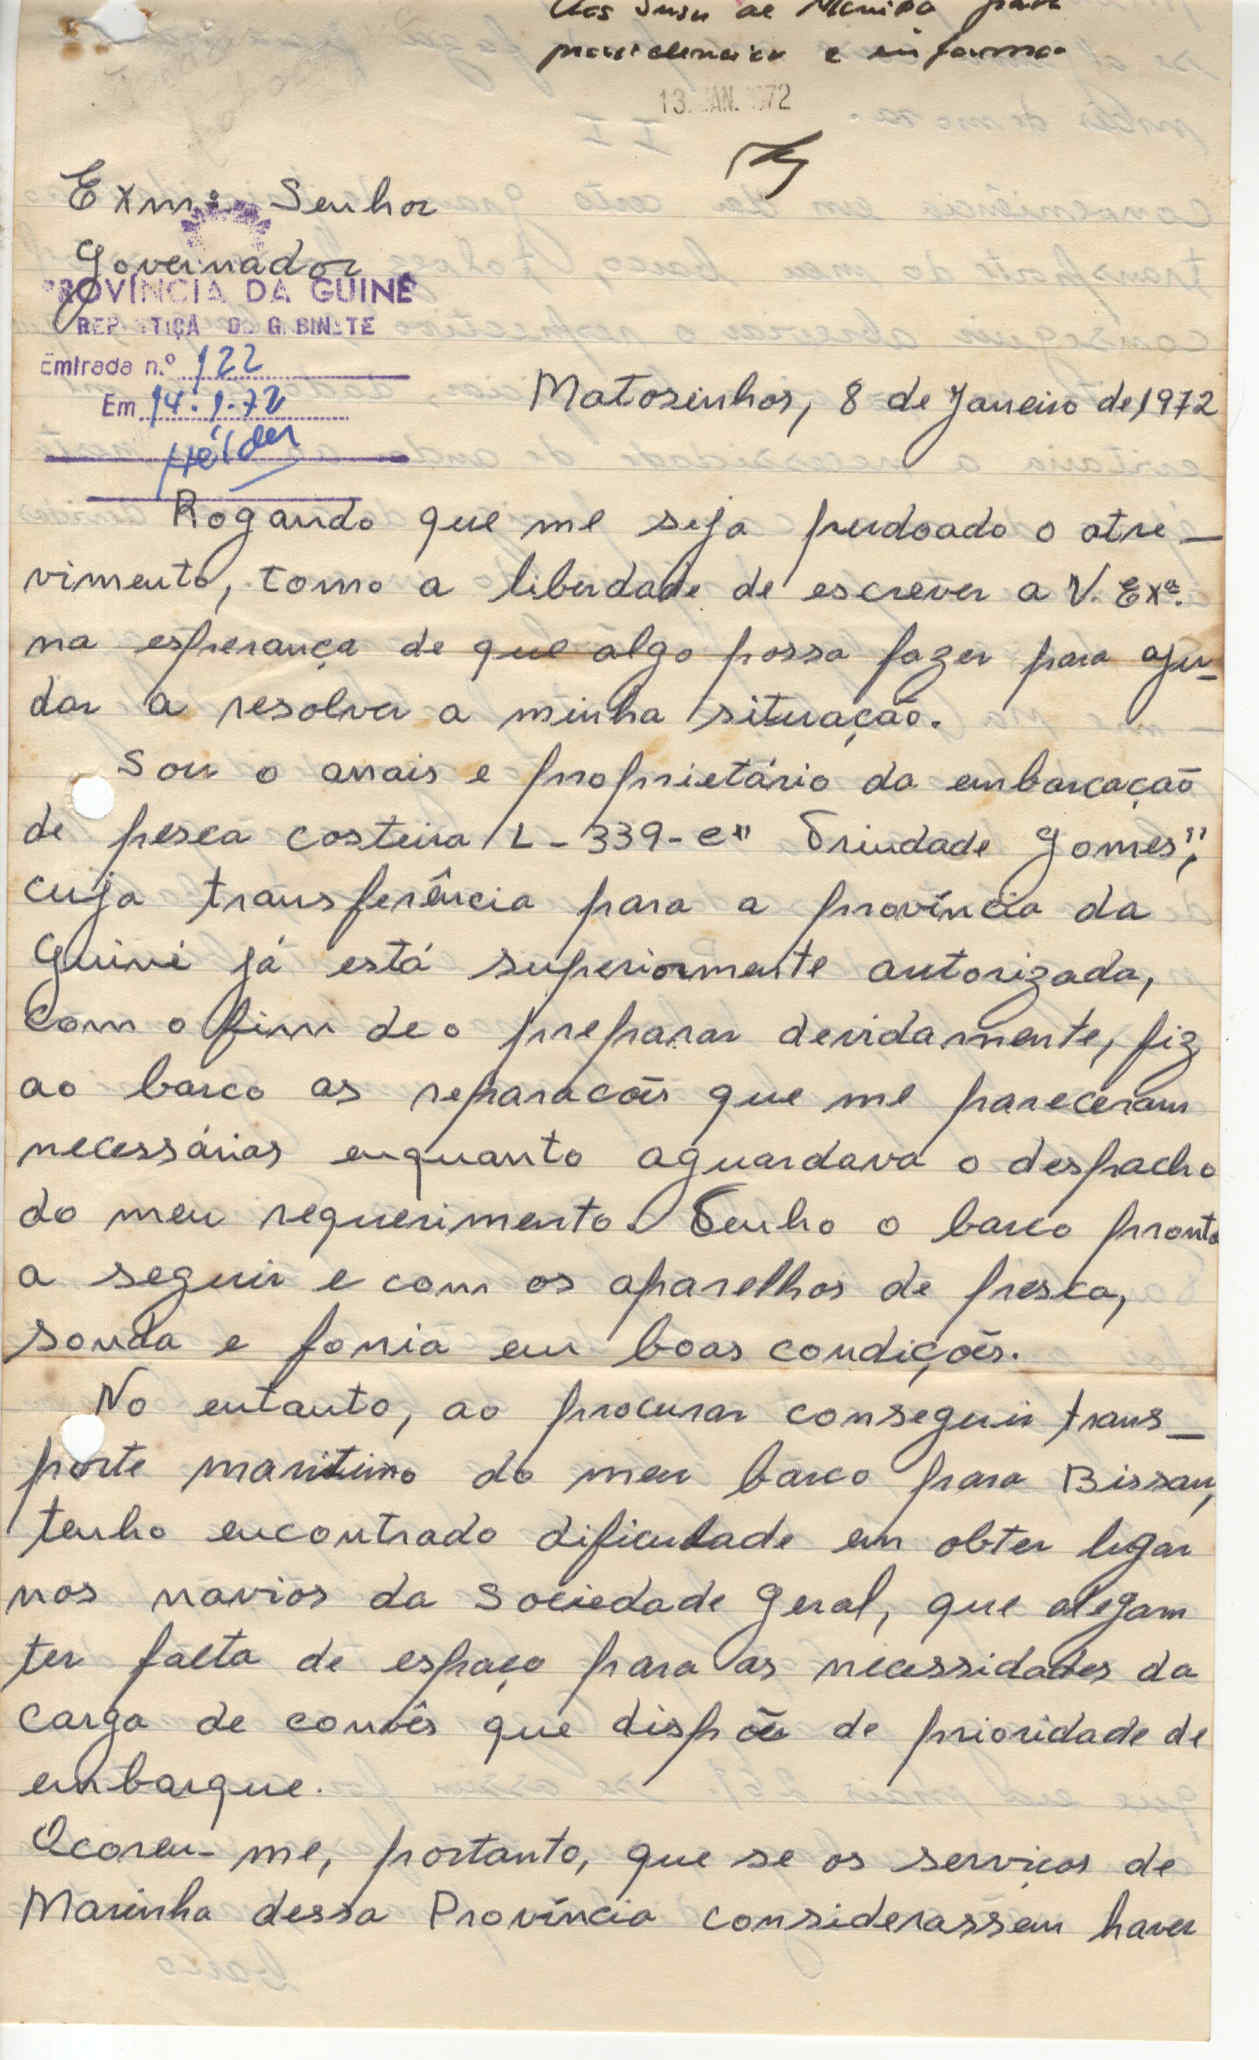 Aos Serv. de Marinha para
providenciar e informar
13. JAN. 1972
Exmº. Senhor
Governador
PROVÍNCIA DA GUINÉ
REPARTIÇÃO DO GABINETE
Entrada n.º 122
Em 14.1.72
Hélder
Matosinhos, 8 de Janeiro de 1972
Rogando que me seja perdoado o atre-
vimento, tomo a liberdade de escrever a V. Exª.
na esperança de que algo possa fazer para aju-
dar a resolver a minha situação.
Sou o arrais e proprietário da embarcação
de pesca costeira L-339-C "Trindade Gomes",
cuja transferência para a província da
Guiné já está superiormente autorizada,
com o fim de o preparar devidamente, fiz
ao barco as reparacões que me pareceram
necessárias enquanto aguardava o despacho
do meu requerimento. Tenho o barco pronto
a seguir e com os aparelhos de pesca,
sonda e fonia em boas condições.
No entanto, ao procurar conseguir trans-
porte maritimo do meu barco para Bissau,
tenho encontrado dificuldade em obter lugar
nos navios da Sociedade Geral, que alegam
ter falta de espaço para as necessidades da
carga de convês que dispõe de prioridade de
embarque.
Ocoreu-me, portanto, que se os serviços de
Marinha dessa Província considerassem haver